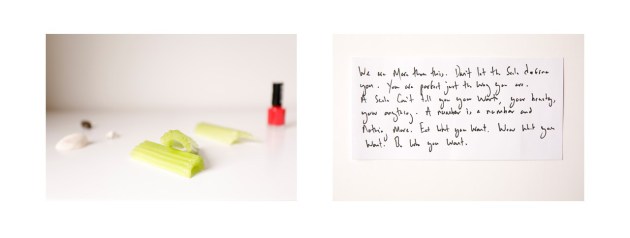 We are More than this. Don't let the Scale define
you. You are perfect just the way you are.
A Scale Can't tell you your worth, your beauty,
your anything. A number is a number and
Nothing More. Eat What you Want. Wear What you
Want. Be Who you Want.